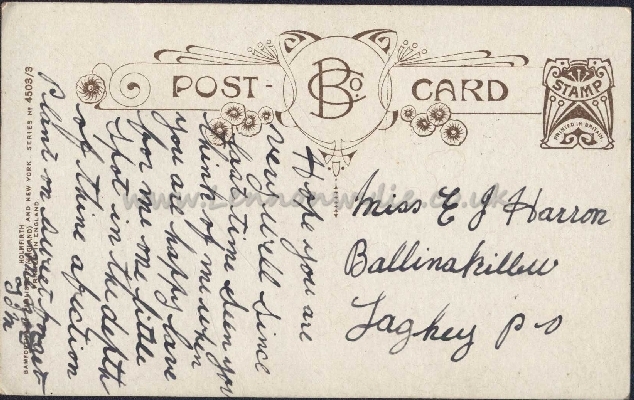 POST-CARD
BCo.
STAMP
PRINTED IN BRITAIN
Hope you are
very well since
last time seen you
think of me when
you are happy have
for me me little
spot in the depth
of thine afection
plant on sweet forget
Miss E J Harron
Ballinakillew
Laghey P O
HOLMFIRTH
(ENGLAND) AND NEW YORK. SERIES No 4503/3
IN ENGLAND
www.Lennonwylie.co.uk